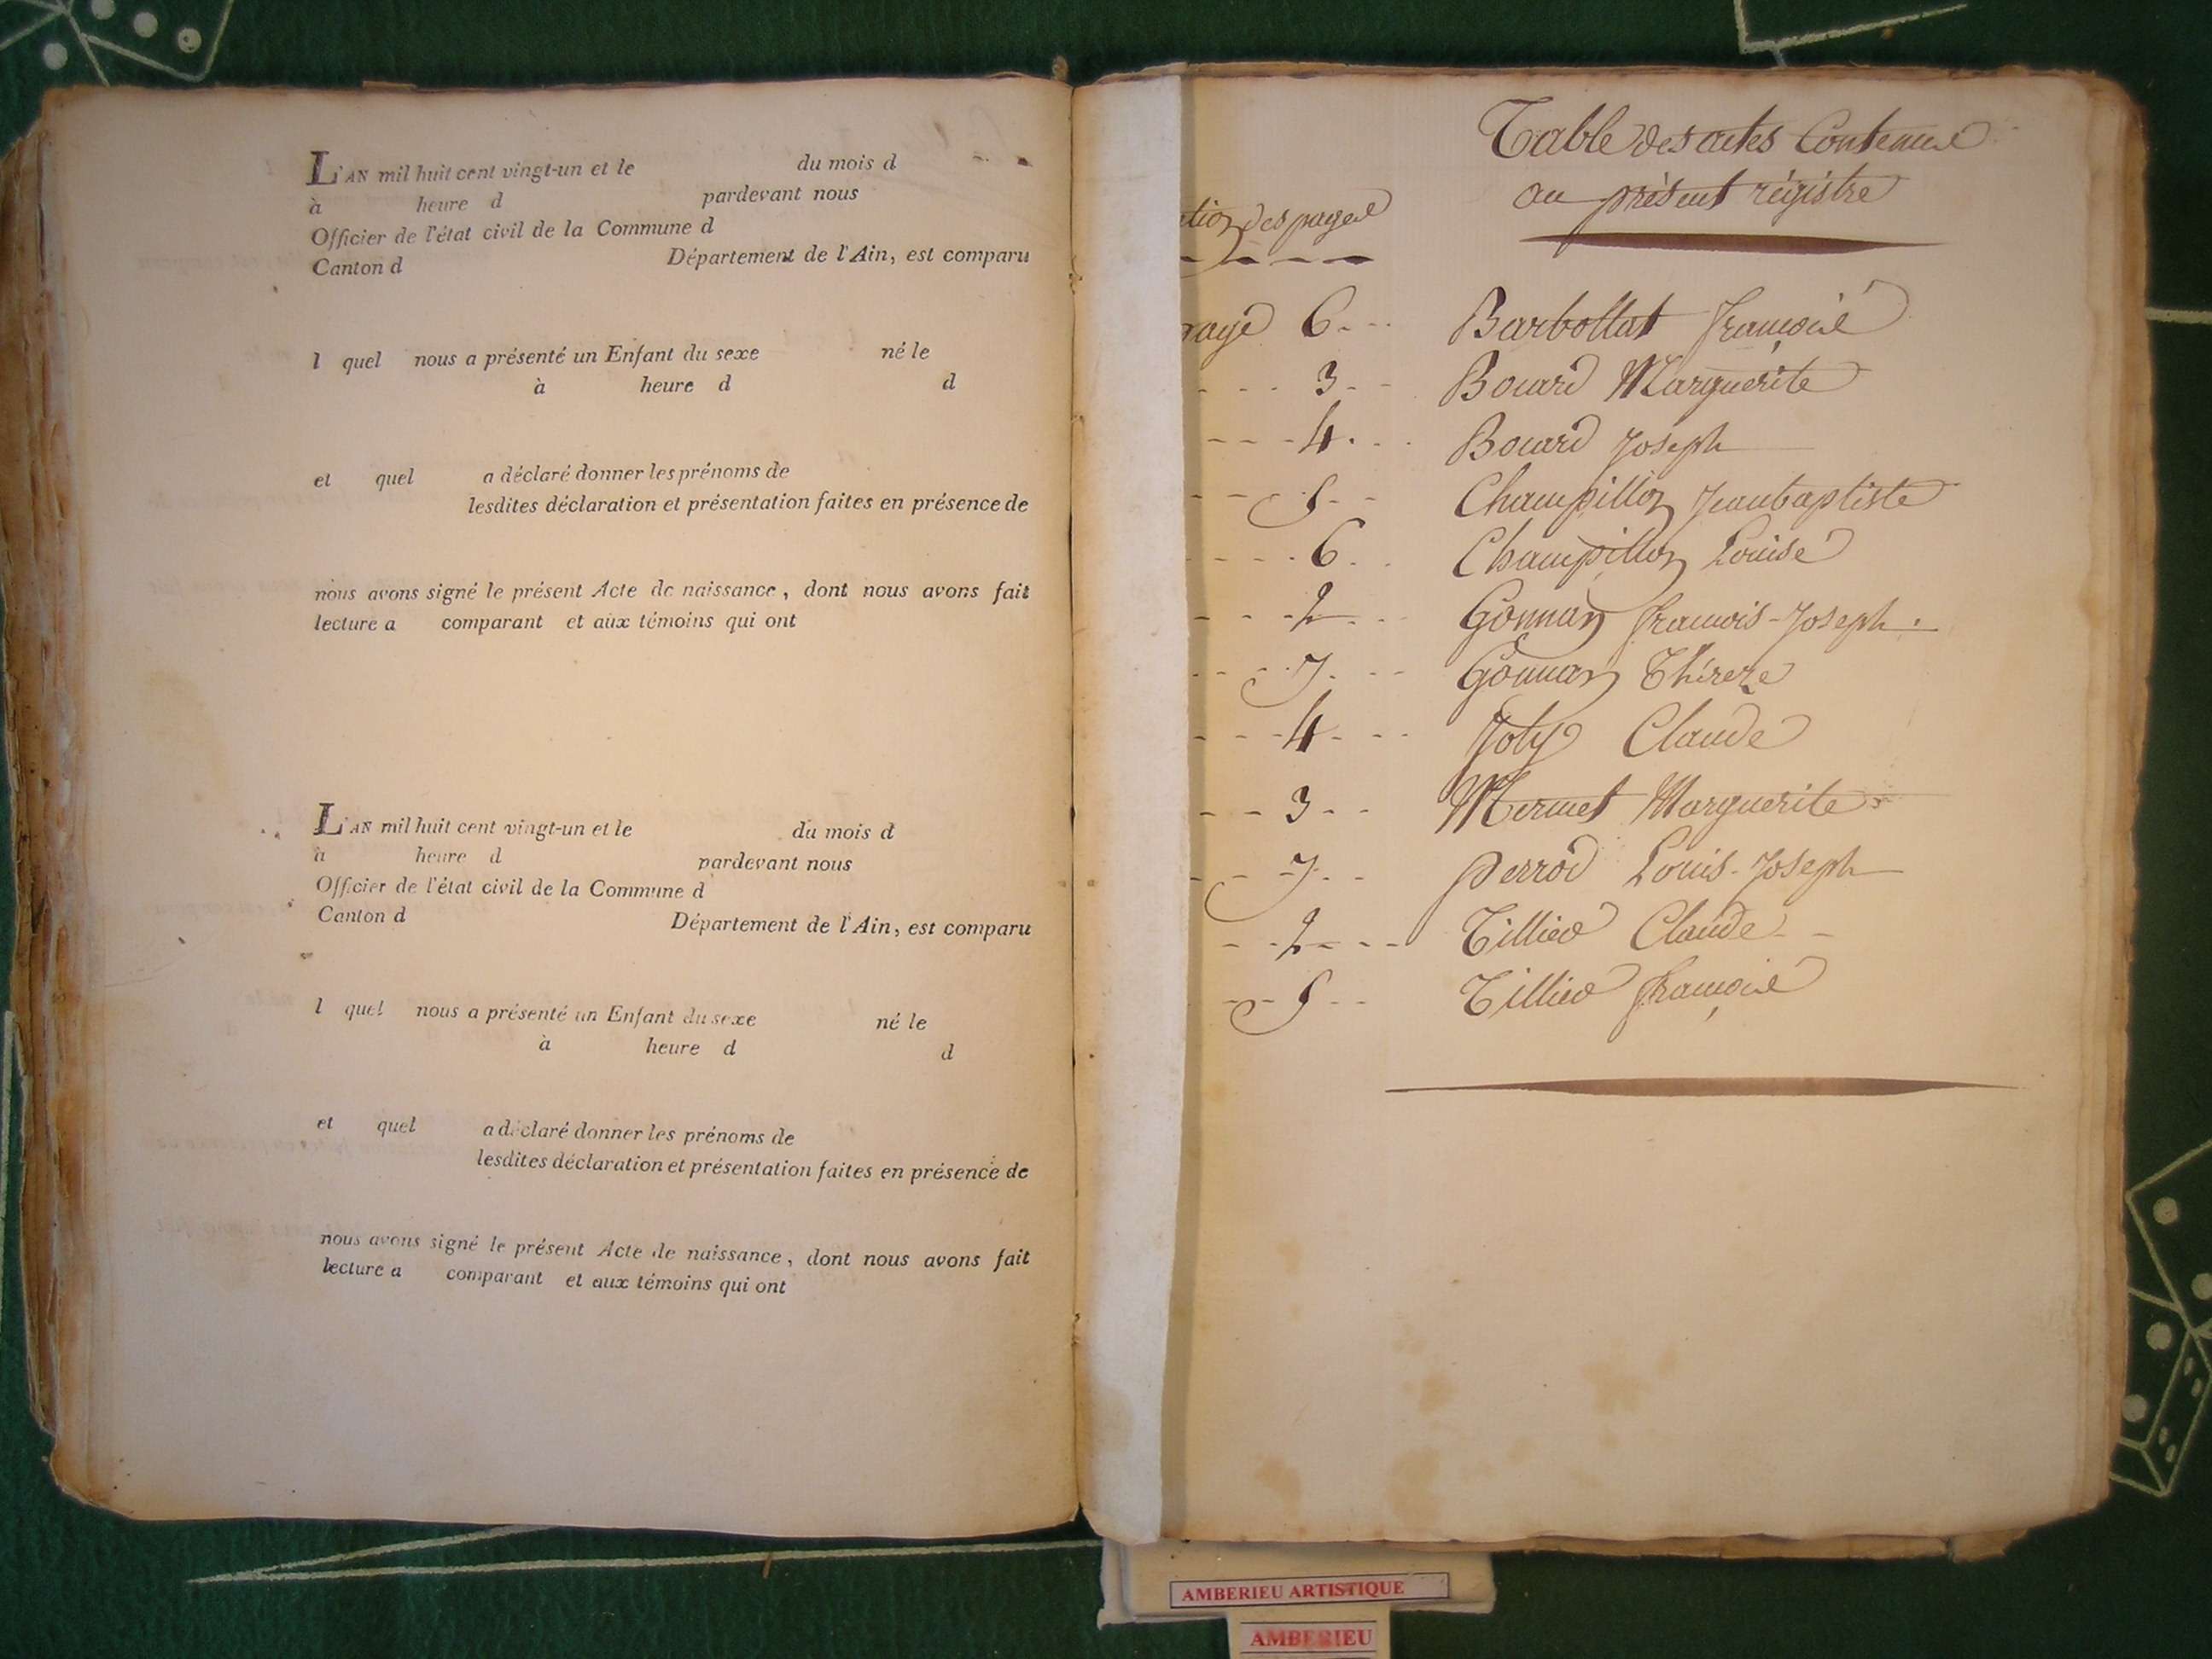 L'AN mil huit cent vingt-un et le du mois d
à heure d pardevant nous
Officier de l'état civil de la Commune d
Canton d Département de l'Ain, est comparu
l quel nous a présenté un Enfant du sexe né le
à heure d d
et quel a déclaré donner les prénoms de
lesdites déclaration et présentation faites en présence de
nous avons signé le présent Acte de naissance, dont nous avons fait
lecture a comparant et aux témoins qui ont
L'AN mil huit cent vingt-un et le du mois d
à heure d pardevant nous
Officier de l'état civil de la Commune d
Canton d Département de l'Ain, est comparu
l quel nous a présenté un Enfant du sexe né le
à heure d d
et quel a déclaré donner les prénoms de
lesdites déclaration et présentation faites en présence de
nous avons signé le présent Acte de naissance, dont nous avons fait
lecture a comparant et aux témoins qui ont
Table des actes Contenus
au présent régistre
des pages
6 Barbollat françoise
3 Bouard Marguerite
4 Bouard Joseph
5 Champillon Jeanbaptiste
6 Champillon Louise
2 Gonnan françois-Joseph.
7 Gonnan Théreze
4 Joly Claude
3 Mermet Marguerite
7 perrod Louis-Joseph
2 Tillied Claude
5 Tillied françoise
AMBERIEU ARTISTIQUE
AMBERIEU